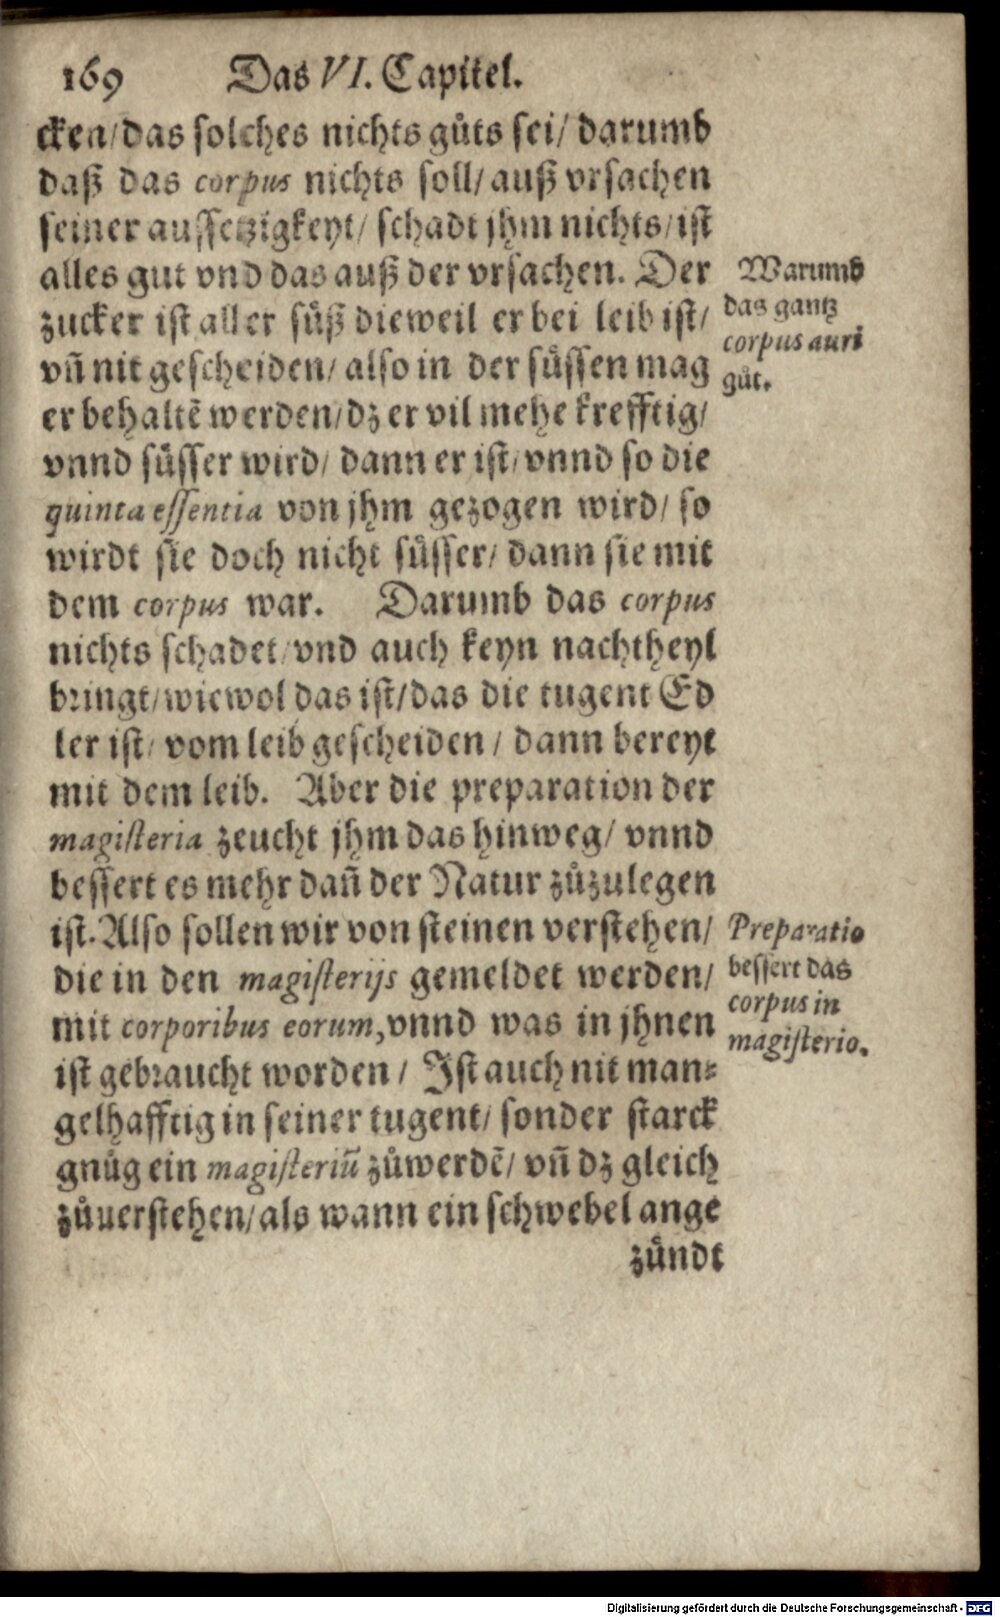 169 Das VI. Capitel.
cken/das solches nichts gůts sei/ darumb
daß das corpus nichts soll/ auß vrsachen
seiner aussetzigkeyt/ schadt jhm nichts/ist
alles gut vnd das auß der vrsachen. Der
zucker ist aller süß dieweil er bei leib ist/
vñ nit gescheiden/ also in der süssen mag
er behaltẽ werden/dz er vil mehe krefftig/
vnnd süsser wird/ dann er ist/vnnd so die
quinta essentia von jhm gezogen wird/ so
wirdt sie doch nicht süsser/ dann sie mit
dem corpus war. Darumb das corpus
nichts schadet/vnd auch keyn nachtheyl
bringt/wiewol das ist/das die tugent Ed
ler ist/ vom leib gescheiden / dann bereyt
mit dem leib. Aber die preparation der
magisteria zeucht jhm das hinweg/ vnnd
bessert es mehr dañ der Natur zůzulegen
ist. Also sollen wir von steinen verstehen/
die in den magisterijs gemeldet werden/
mit corporibus eorum, vnnd was in jhnen
ist gebraucht worden / Ist auch nit man⸗
gelhafftig in seiner tugent/ sonder starck
gnůg ein magisteriũ zůwerdẽ/ vñ dz gleich
zůuerstehen/als wann ein schwebel ange
zündt
Warumb
das gantz
corpus auri
gůt.
Preparatio
bessert das
corpus in
magisterio.
Digitalisierung gefördert durch die Deutsche Forschungsgemeinschaft - DFG